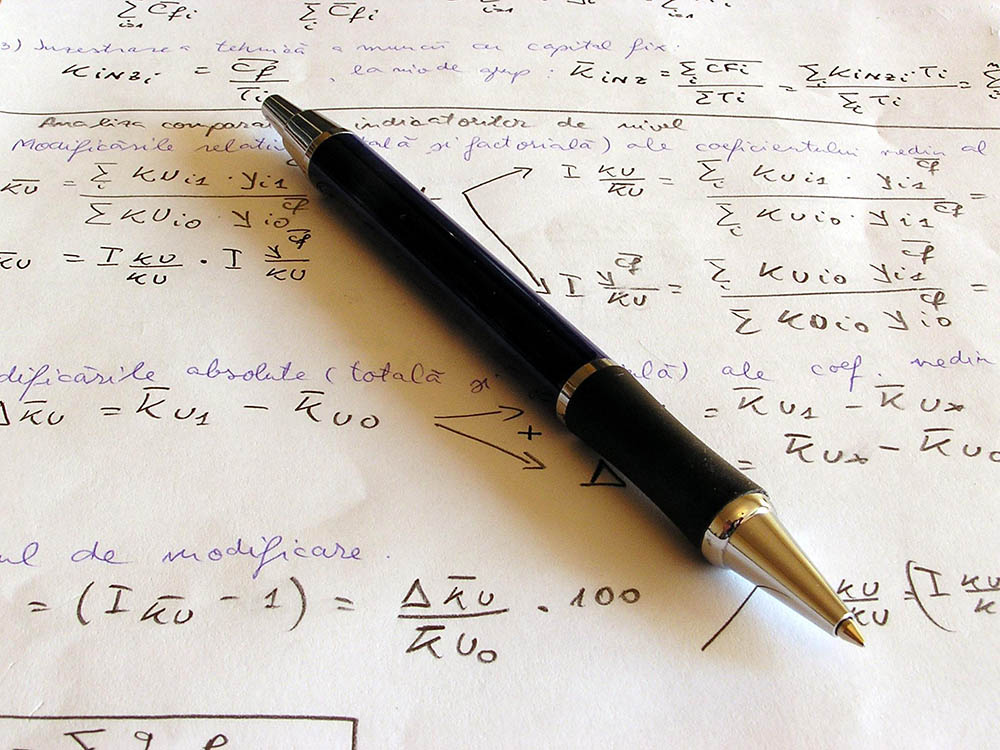 Σ C̅f̅i Σ C̅fi
i=1 i
3) Inzestrarea tehnică a muncii cu capital fix.
Kinzi = C̅f̅ / Ti , la niv de grup : K̅inz = Σi C̅F̅i / ΣTi = Σi Kinzi·Ti / Σi Ti =
Analiza indicatorilor de nivel
Modificările factorială) ale coeficientului mediu al
K̅U̅ = Σi KUi1 · yi1 C̅f̅ / Σ KUi0 · yi0 C̅f̅ I KU/K̅U̅ = Σi KUi1 · yi1 C̅f̅ / Σi KUi0 · yi1 C̅f̅ =
K̅U̅ = I KU/KU · I y C̅f̅/KU I y C̅f̅/KU = Σi KUi0 yi1 C̅f̅ / Σi KUi0 yi0 C̅f̅ =
dificările absolute (totală și ală) ale coef. mediu
ΔK̅U = K̅U1 − K̅U0 = K̅U1 − K̅Ux
+ Δ = K̅Ux − K̅U0
ul de modificare.
= (I K̅U − 1) = ΔK̅U / K̅U0 · 100 KU/KU (I KU/K